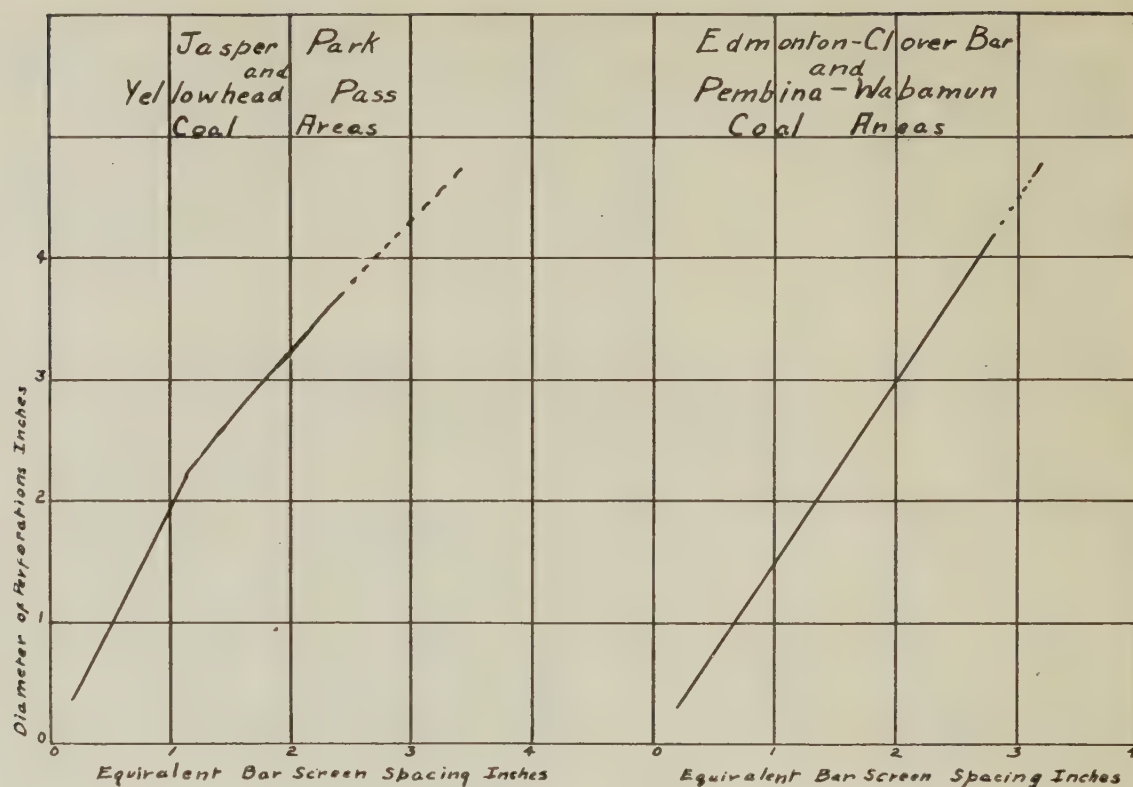 Jasper Park
and
Yellowhead Pass
Coal Areas
Edmonton-Clover Bar
and
Pembina-Wabamun
Coal Areas
Diameter of Perforations Inches
4
3
2
1
0
0 1 2 3 4
Equivalent Bar Screen Spacing Inches
0 1 2 3 4
Equivalent Bar Screen Spacing Inches